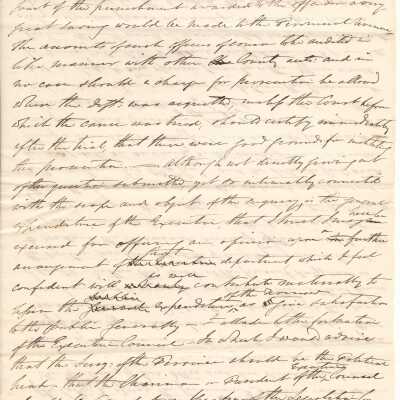 part of the punishment awarded to the offender a very
great saving would be made to the Provincial
the accounts of such officers of course to be audited in
like manner with other County acts: and in
no case should a charge for prosecution be allowed
when the deft: was acquitted, unless the Court before
which the cause was tried, should certify immediately
after the trial, that there were good grounds for instituting
the prosecution. — although not directly growing out
of the question submitted, yet so intimately connected
with the scope and object of the enquiry, is the
expenditure of the Executive, that I trust I may be
excused for offering an opinion upon the further
arrangement of that department which I feel
confident will as well contribute materially to
the expenditure, as give satisfaction
to the public generally — I allude to the formation
of the Executive Council — to which I would advise
that the of the Province should be the Political
head — that the Chairman or President of the Executive Council